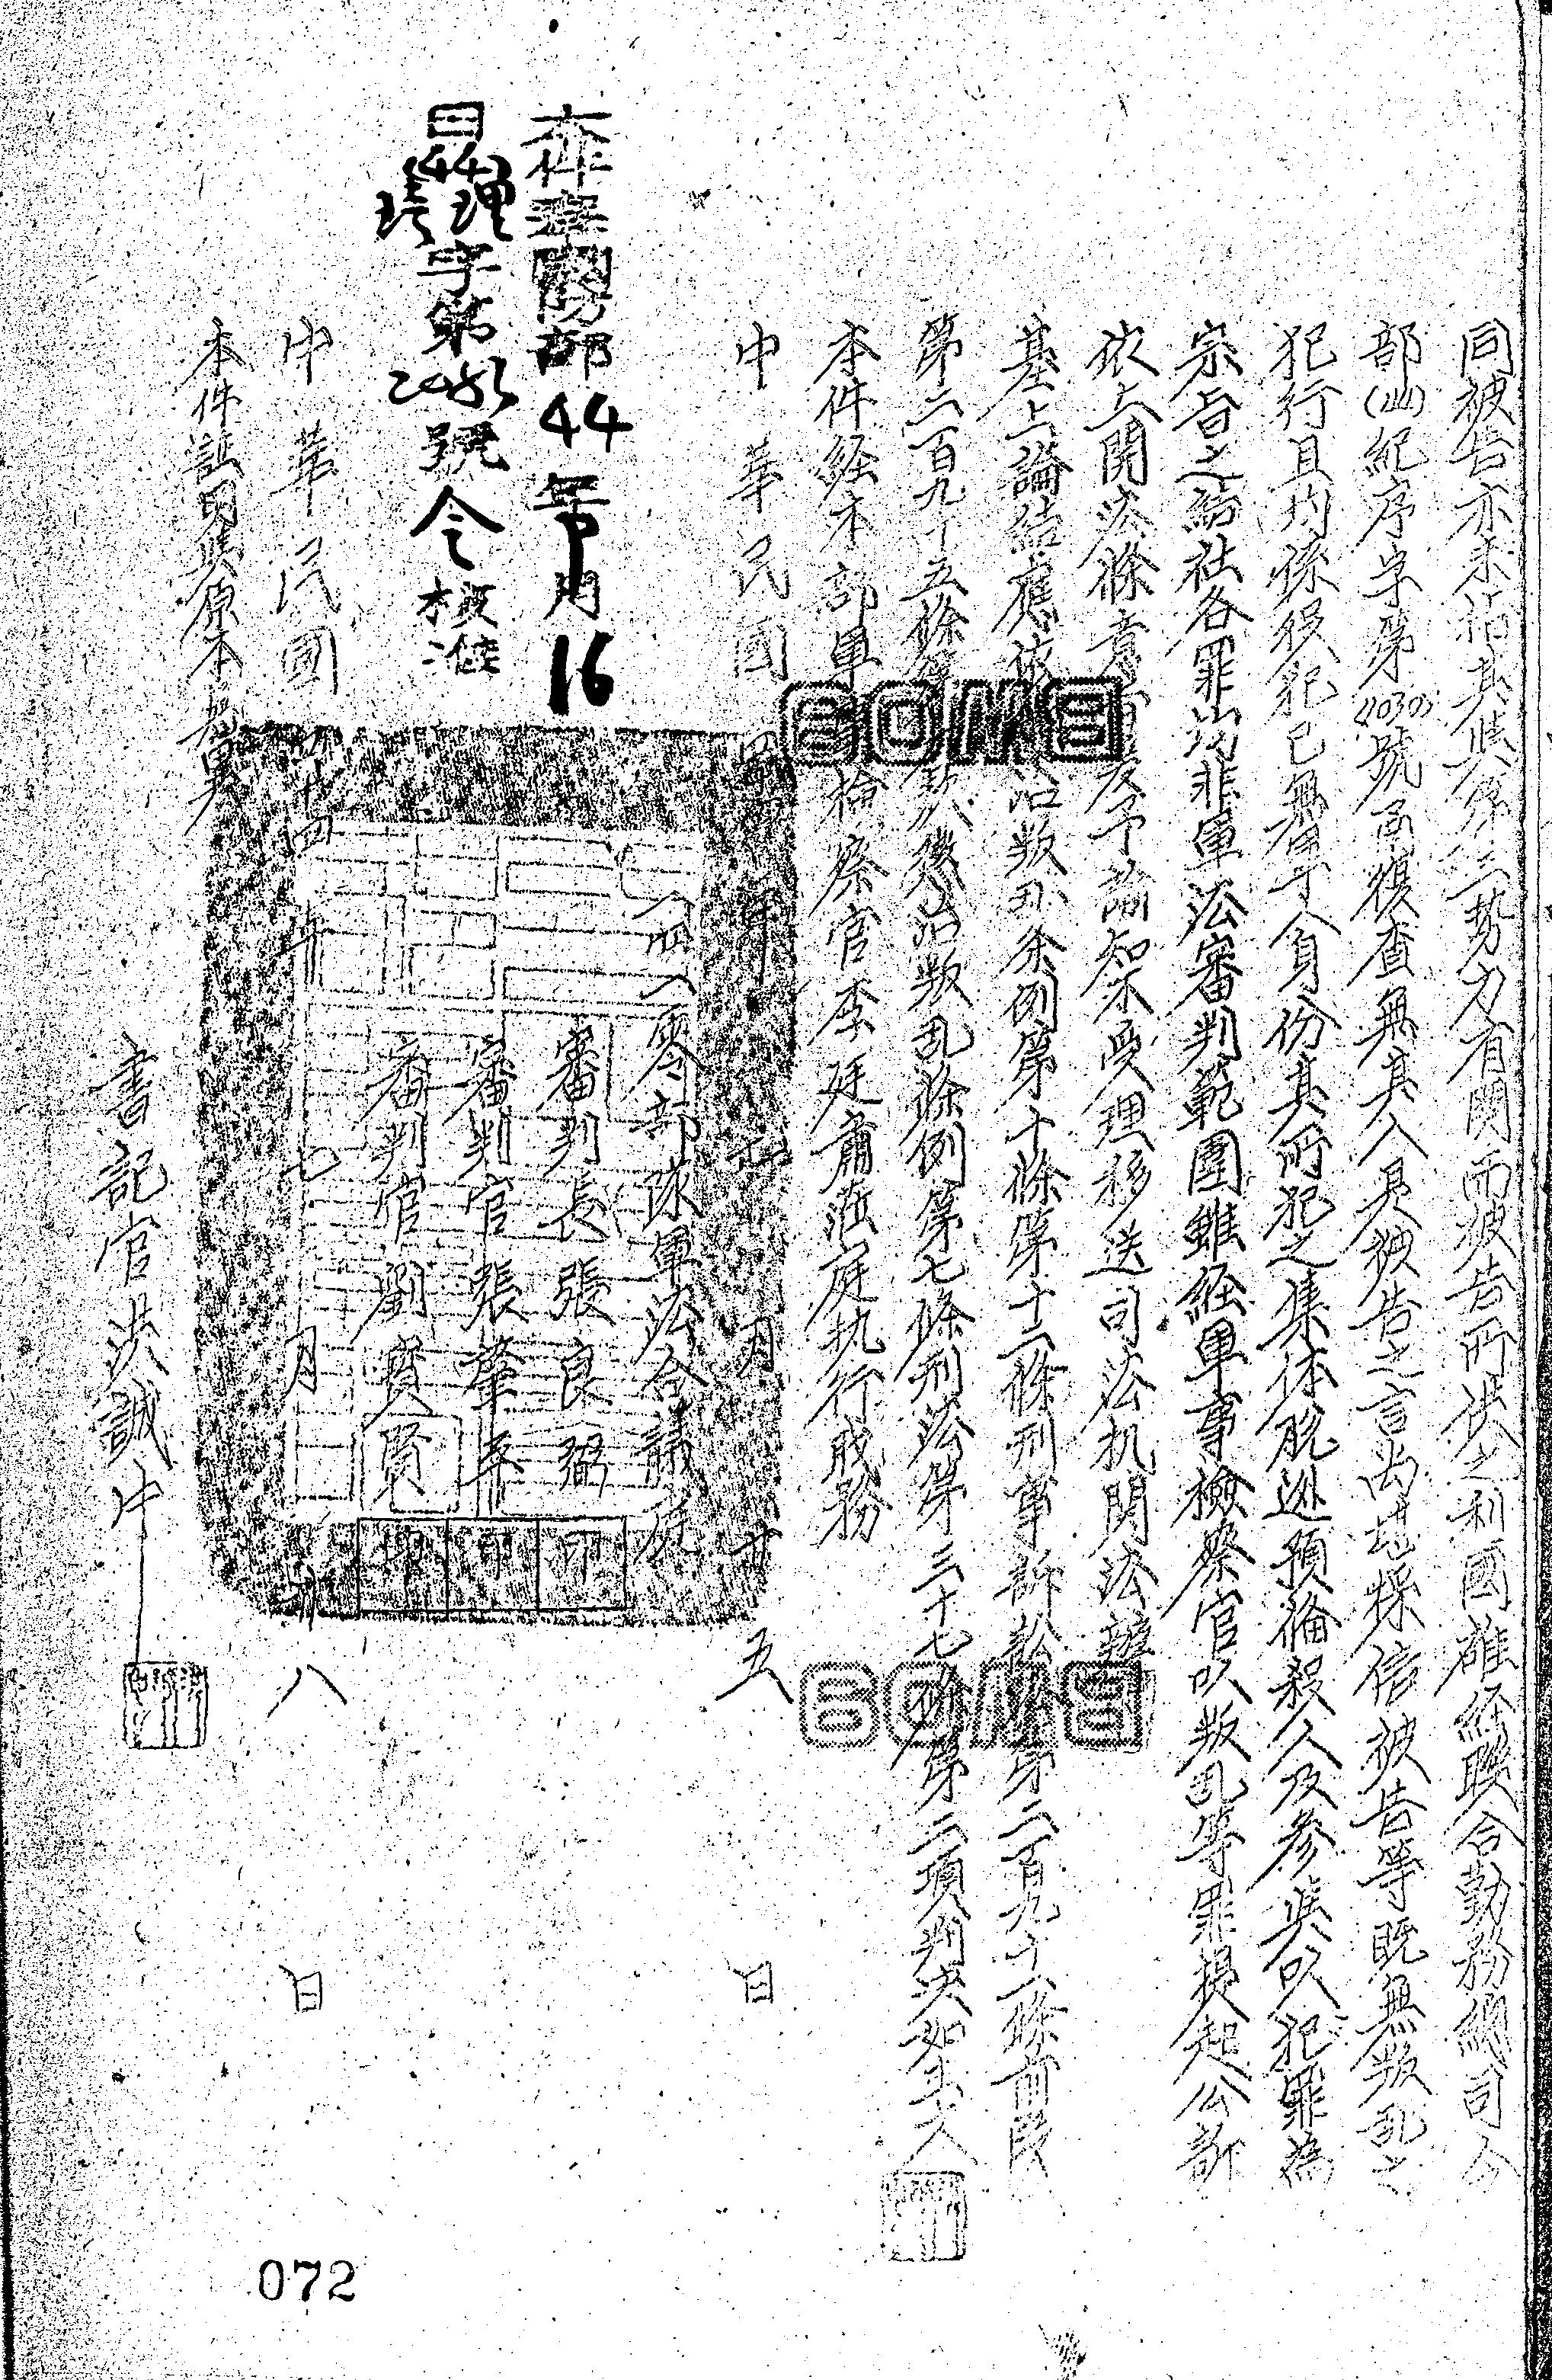 同被告亦未指其與第三勢力有関而被告所供之利國雄経聯合勤務總司令
部(山)紀序字第號函復查無其人是被告之言尚堪採信被告等既無叛乱之
犯行且均係役犯已無軍人身份其所犯之集体脱逃預備殺人及參與以犯罪為
宗旨之結社各罪均非軍法審判範圍雖経軍事檢察官以叛乱等罪提起公訴
依上開法條意旨應予諭知不受理移送司法机関法辦
基上論結應依治叛乱条例第十條第十二條刑事訴訟法第二百九十八條前段
第二百九十五條第款八懲治叛乱條例第七條刑法第三十七條第二項判決如主文
本件経本部軍檢察官李廷肅蒞庭执行戝務
中華民國四十四年月廿五日
一四一零部隊軍法合議庭
審判長張良弼印
審判官張肇平印
審判官劉賓賢印
本件奉國防部44年月16
日(44)理字第號令核准
中華民國四十四年七月八日
本件証明與原本無異
書記官洪誠中
BOMB
BOMB
072